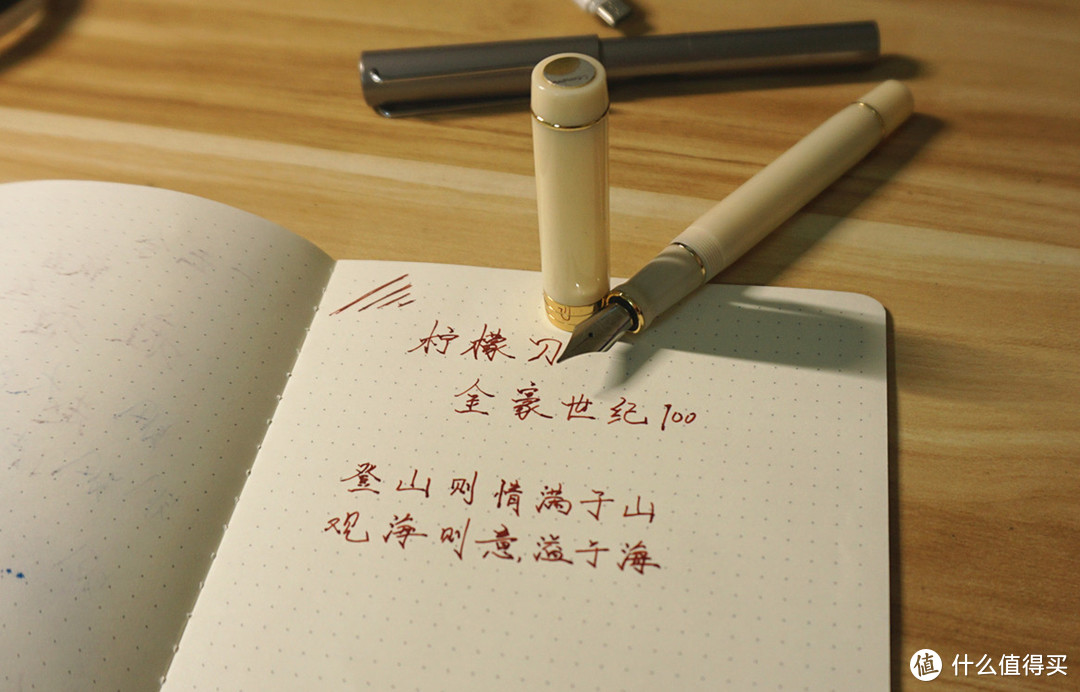 柠檬刃
金豪世纪100
登山则情满于山
观海则意溢于海
值 什么值得买